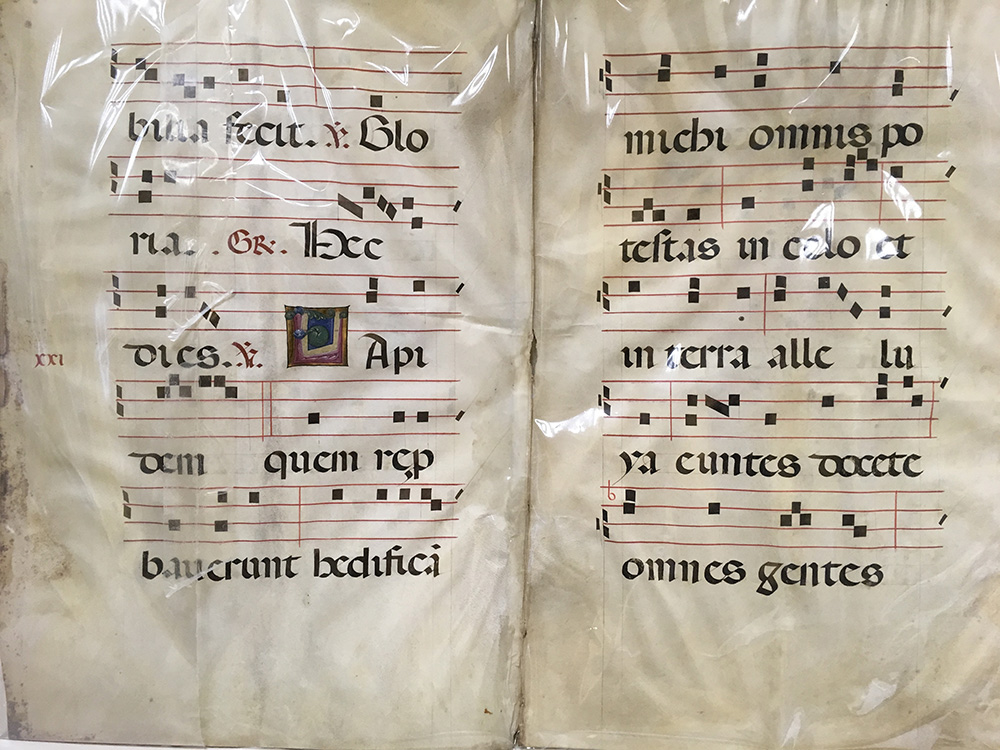 bilia fecit. ℣. Glo
ria. . Gr. Hec
xxi dies. ℣. L Api
dem quem rep
bauerunt hedificā
michi omnis po
testas in celo et
in terra alle lu
ya euntes docete
omnes gentes